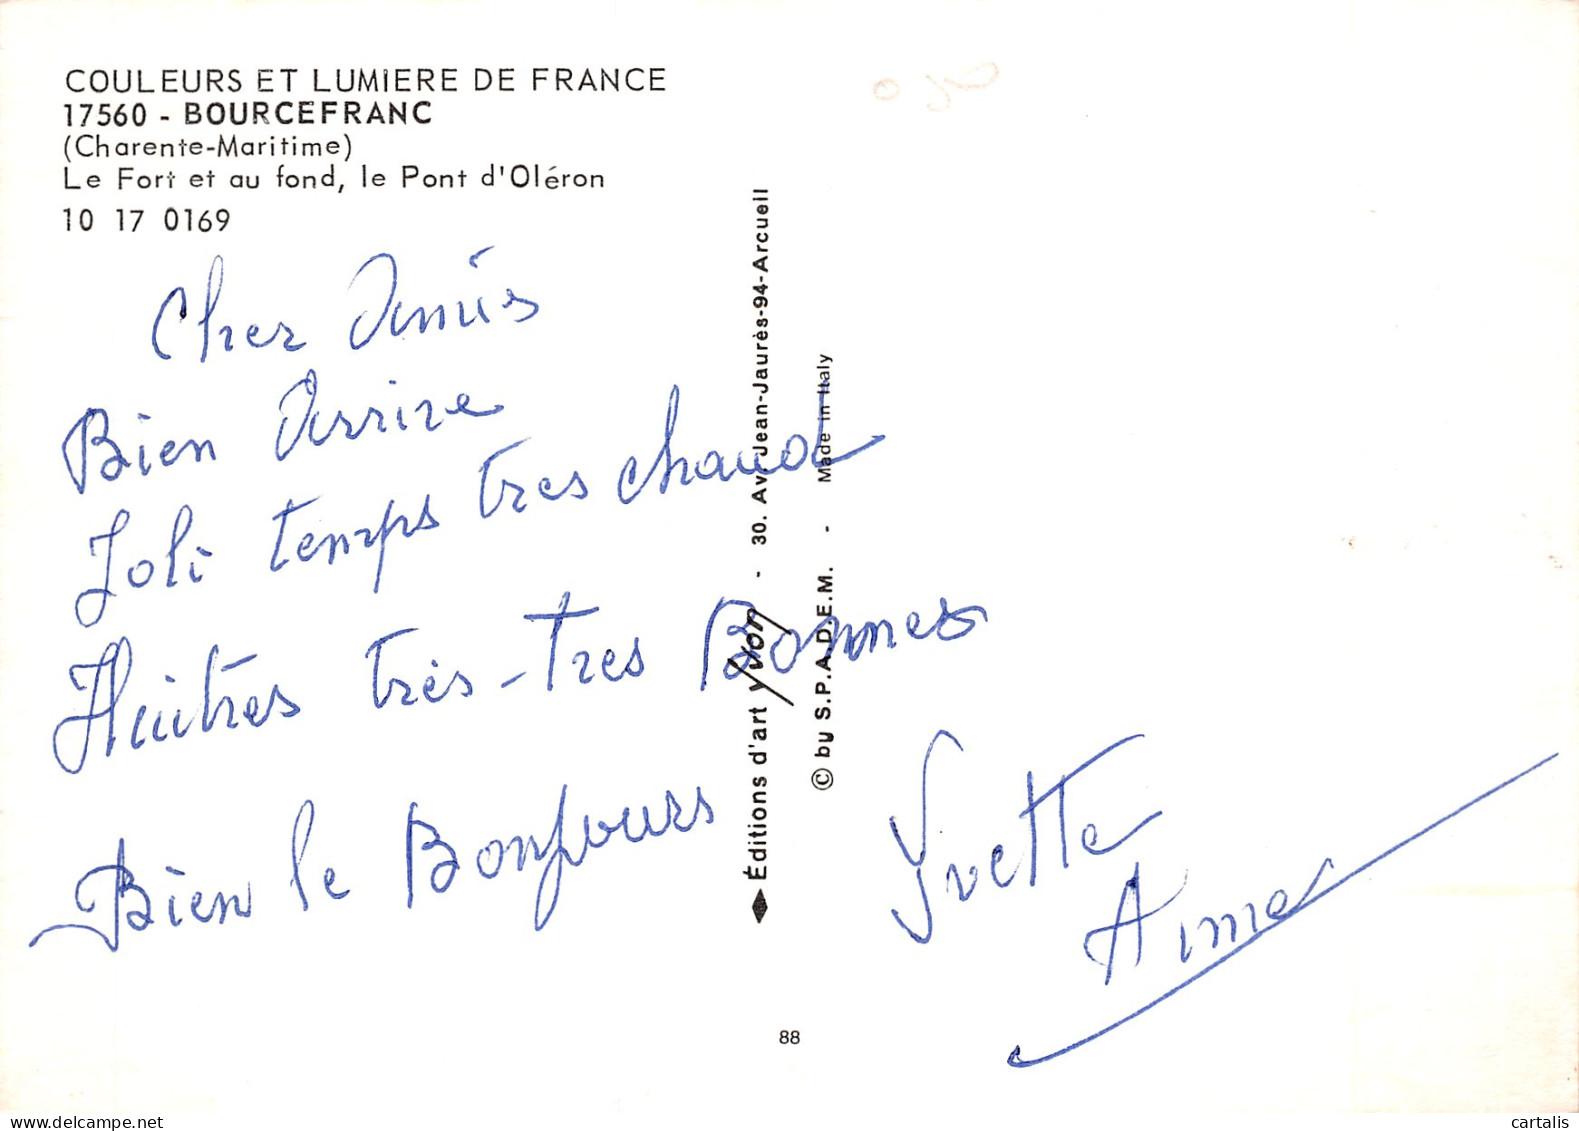 COULEURS ET LUMIERE DE FRANCE
17560 - BOURCEFRANC
(Charente-Maritime)
Le Fort et au fond, le Pont d'Oléron
10 17 0169
Cher Amis
Bien Arrive
Joli temps tres chaud
Huitres très-tres Bonnes
Bien le Bonjours
Yvette
Aime
Éditions d'art Yvon - 30. Av. Jean-Jaurès-94-Arcueil
© by S.P.A.D.E.M. - Made in Italy
88
cartalis